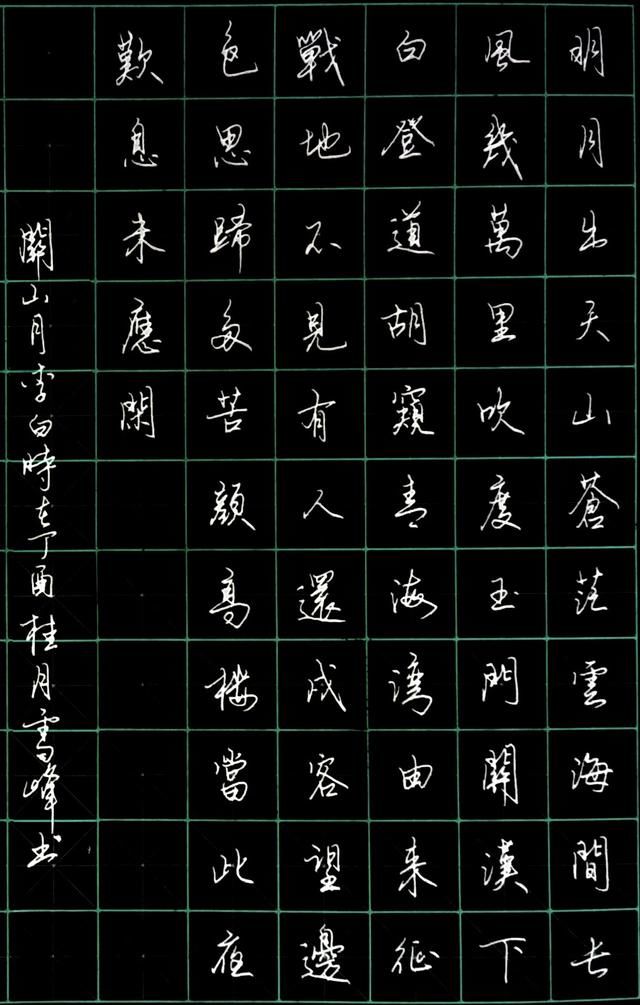 明月出天山蒼茫雲海間長
風幾萬里吹度玉門關漢下
白登道胡窺青海灣由來征
戰地不見有人還戍客望邊
色思歸多苦顏高樓當此夜
歎息未應閑
關山月李白時在丁酉桂月雪峰書